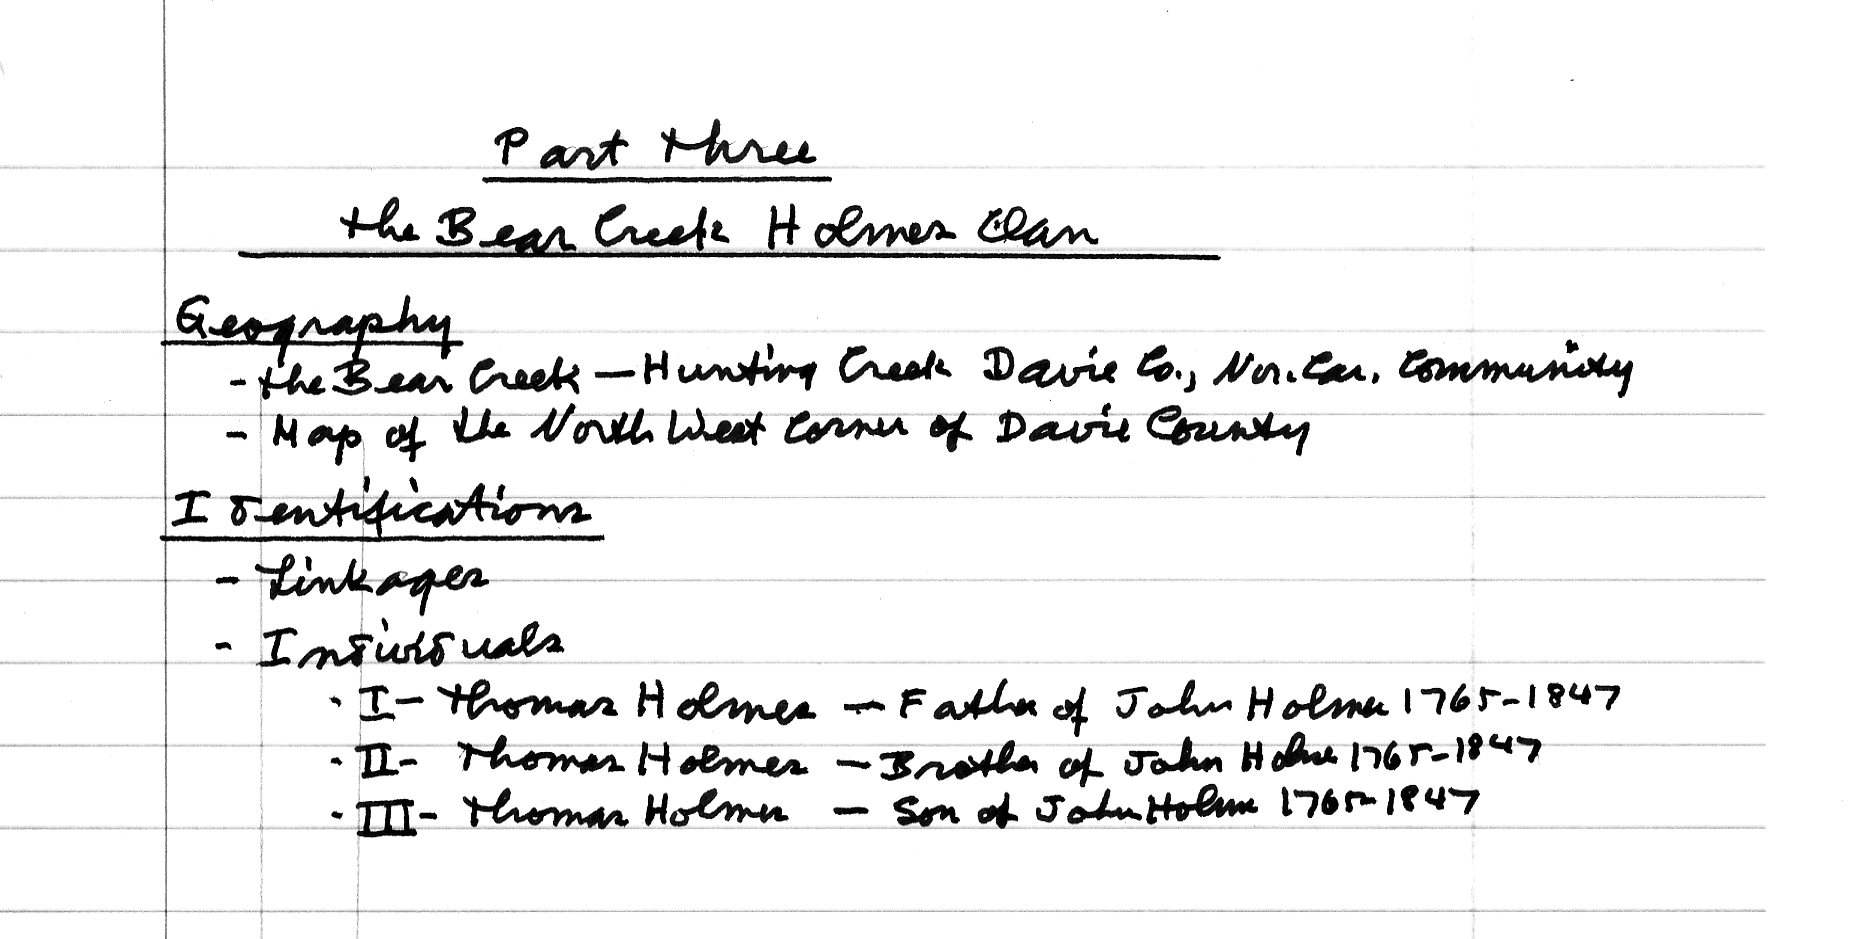 Part Three
the Bear Creek Holmes Clan
Geography
- the Bear Creek — Hunting Creek Davie Co., Nor. Car. Community
- Map of the North West Corner of Davie County
Identifications
- Linkages
- Individuals
· I - Thomas Holmes — Father of John Holmes 1765-1847
· II - Thomas Holmes — Brother of John Holmes 1765-1847
· III - Thomas Holmes — Son of John Holmes 1765-1847